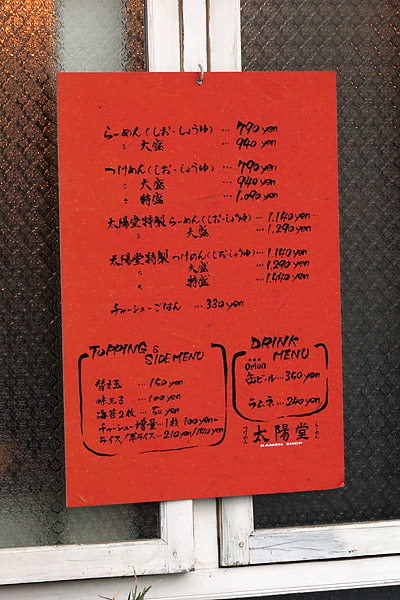 らーめん(しお・しょうゆ) … 790 yen
〃 大盛 … 940 yen
つけめん(しお・しょうゆ) … 790 yen
〃 大盛 … 940 yen
〃 特盛 … 1,090 yen
太陽堂特製 らーめん(しお・しょうゆ) … 1,140 yen
〃 大盛 … 1,290 yen
太陽堂特製 つけめん(しお・しょうゆ) … 1,140 yen
〃 大盛 … 1,290 yen
〃 特盛 … 1,440 yen
チャーシューごはん … 330 yen
TOPPING &
SIDE MENU
替え玉 … 150 yen
味玉子 … 100 yen
海苔2枚 … 50 yen
チャーシュー増量 … 1枚 100 yen~
ライス/半ライス … 210 yen/140 yen
DRINK
MENU
★★★
Orion
缶ビール … 350 yen
ラムネ … 240 yen
つけめん 太陽堂 らーめん
RAMEN SHOP